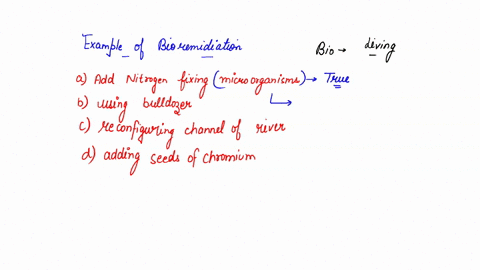 Example of Bioremidiation
Bio → living
a) Add Nitrogen fixing (microorganisms) → True
b) using bulldozer
c) reconfiguring channel of river
d) adding seeds of chromium